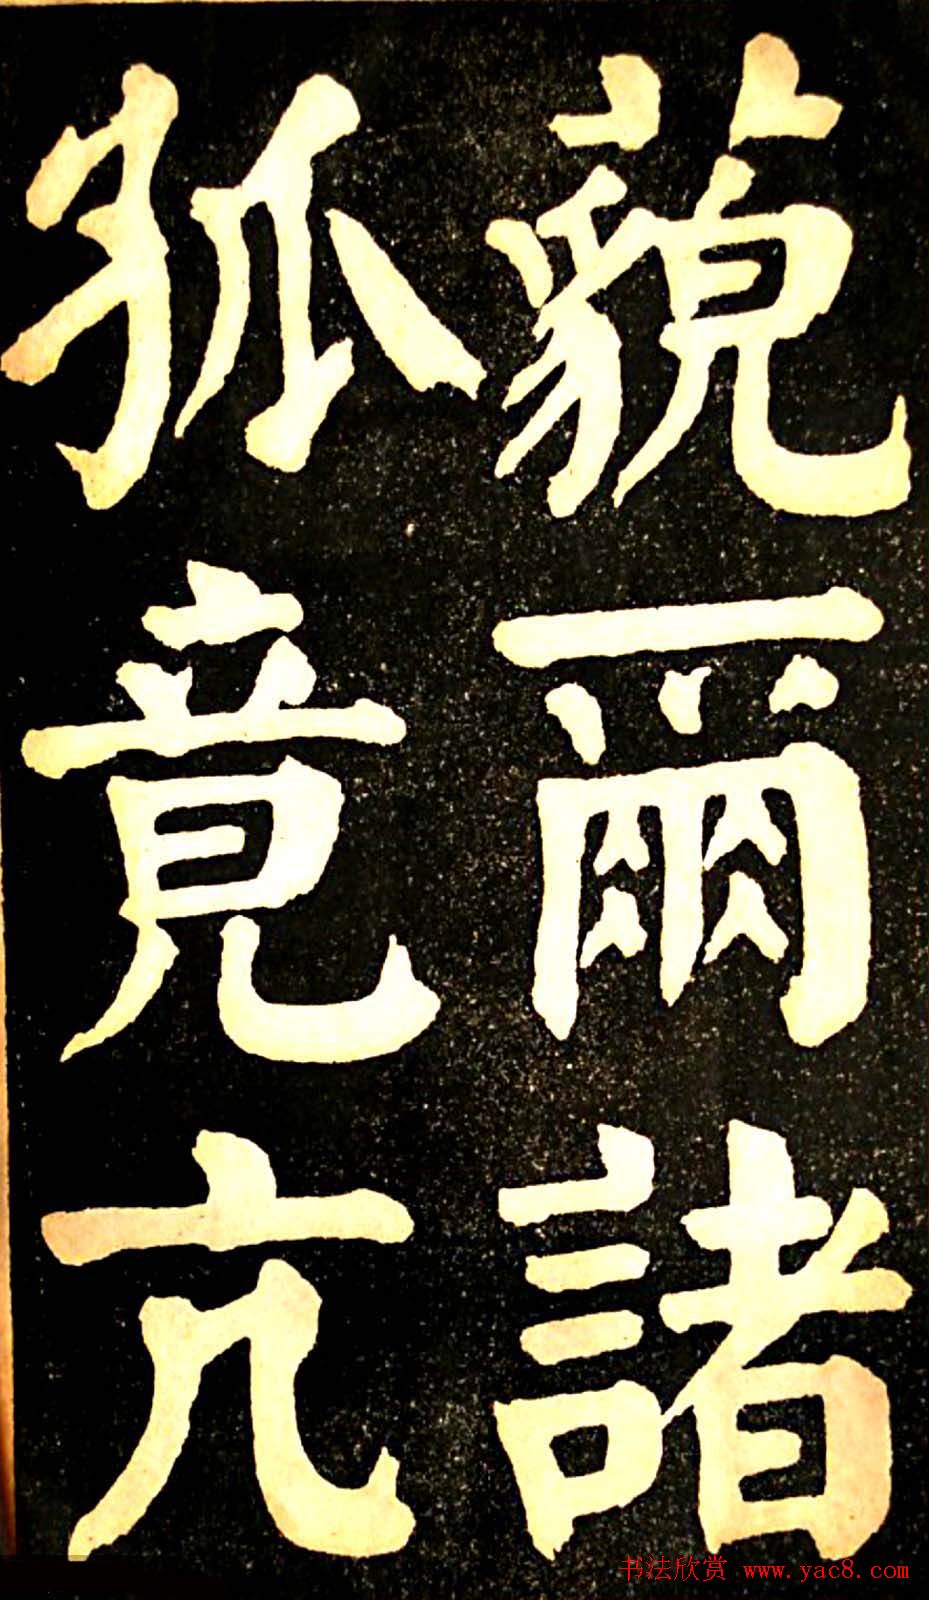 藐爾諸
孤竟亢
书法欣赏 www.yac8.com